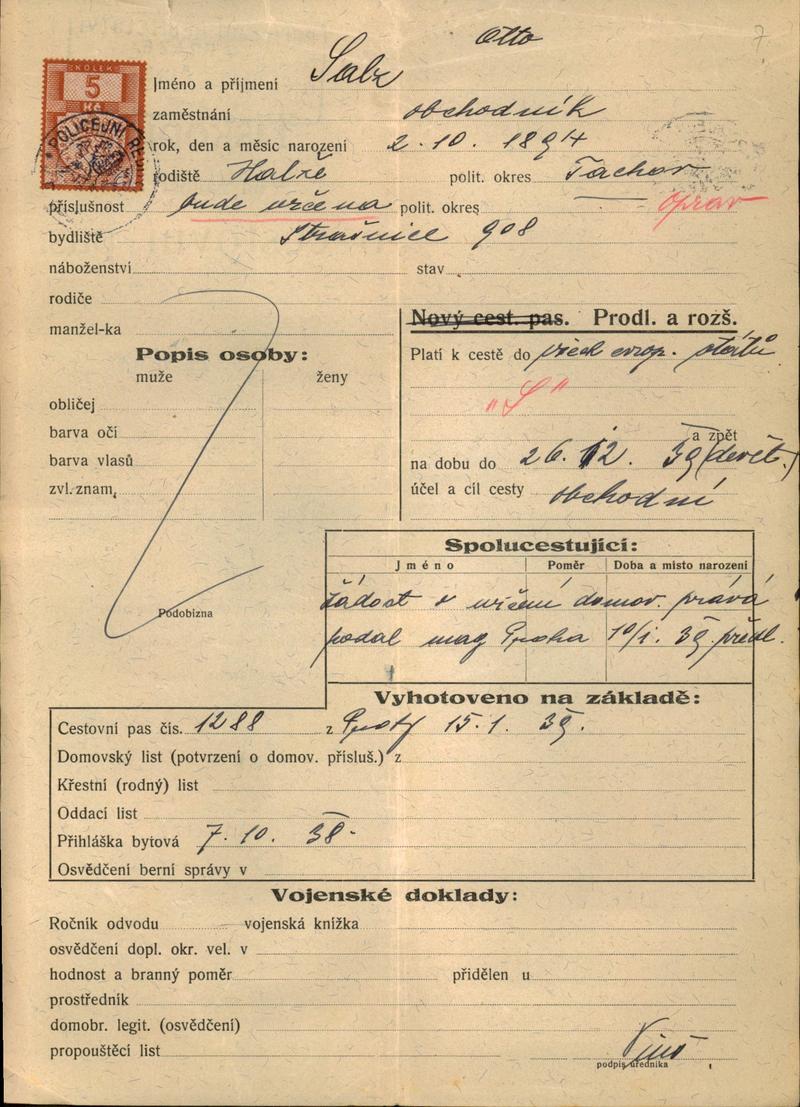 7
Otto
KOLEK
5
Kč
POLICEJNÍ ŘE
Jméno a příjmení Salz
zaměstnání obchodník
rok, den a měsíc narození 2. 10. 1894
rodiště Halže polit. okres Tachov
příslušnost bude určena polit. okres — oprav
bydliště Strašnice 908
náboženství stav
rodiče
manžel-ka
Nový cest. pas. Prodl. a rozš.
Popis osoby:
muže ženy
obličej
barva očí
barva vlasů
zvl. znam.
Platí k cestě do všech evrop. států
"S"
a zpět
na dobu do 26. 12. 39 (devět.)
účel a cíl cesty obchodní
Podobizna
Spolucestující:
Jméno Poměr Doba a místo narození
žádost o určení domov. práva
podal mag Praha 10/I. 39. předl.
Vyhotoveno na základě:
Cestovní pas čís. 1288 z 15. 1. 39.
Domovský list (potvrzení o domov. přísluš.) z
Křestní (rodný) list
Oddací list
Přihláška bytová 7. 10. 38.
Osvědčení berní správy v
Vojenské doklady:
Ročník odvodu vojenská knížka
osvědčení dopl. okr. vel. v
hodnost a branný poměr přidělen u
prostředník
domobr. legit. (osvědčení)
propouštěcí list
podpis úředníka